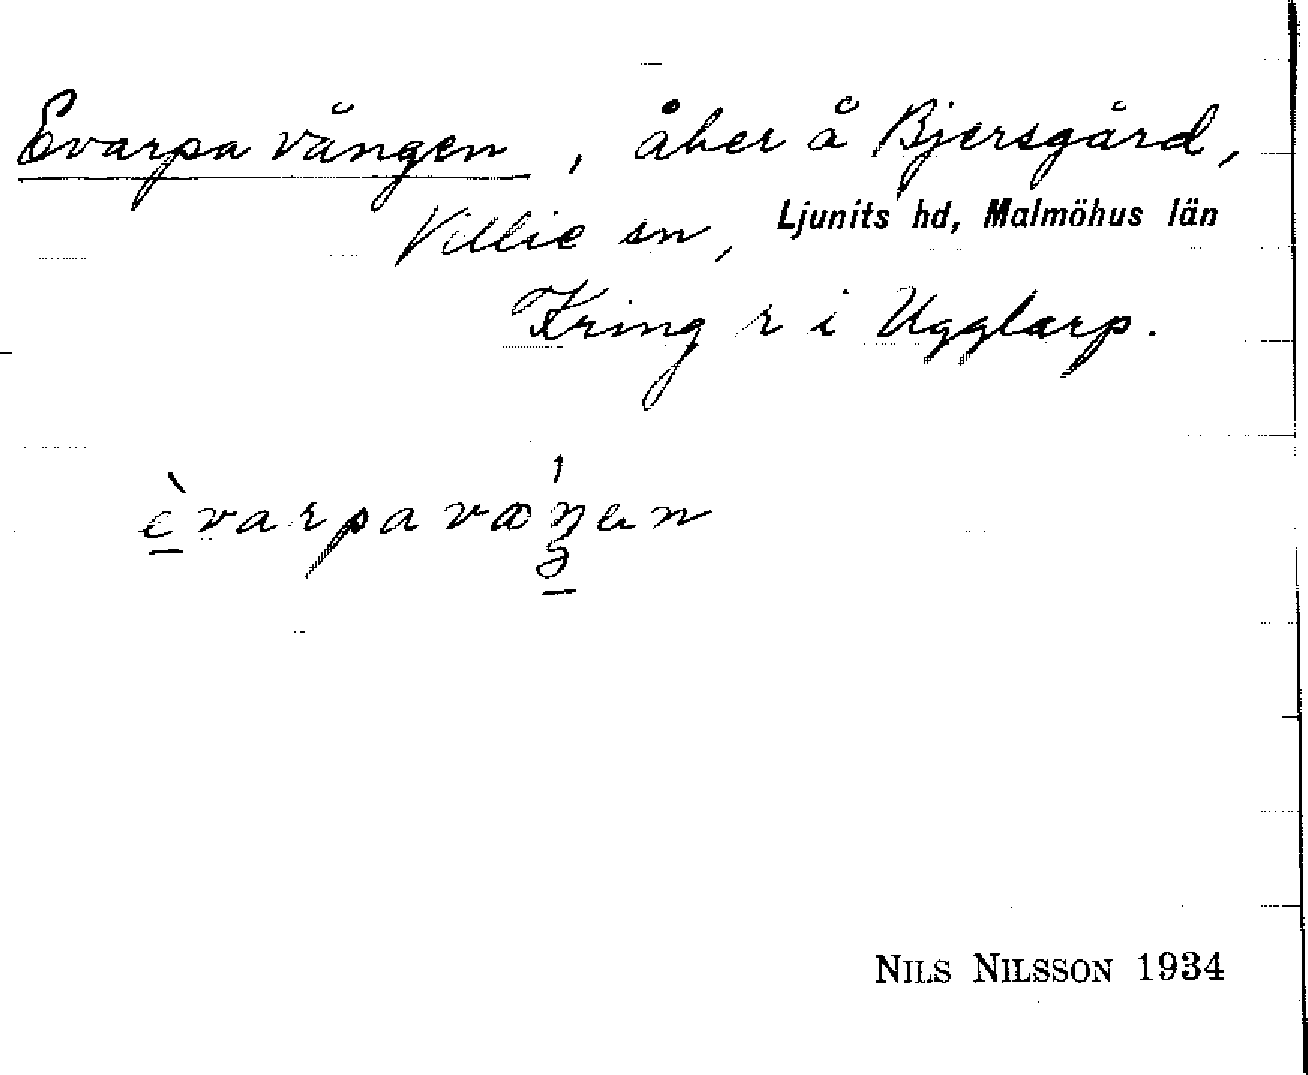 Evarpa vången, åker å Bjersgård,
Villie sn, Ljunits hd, Malmöhus län
Kring r i Ugglarp.
NILS NILSSON 1934